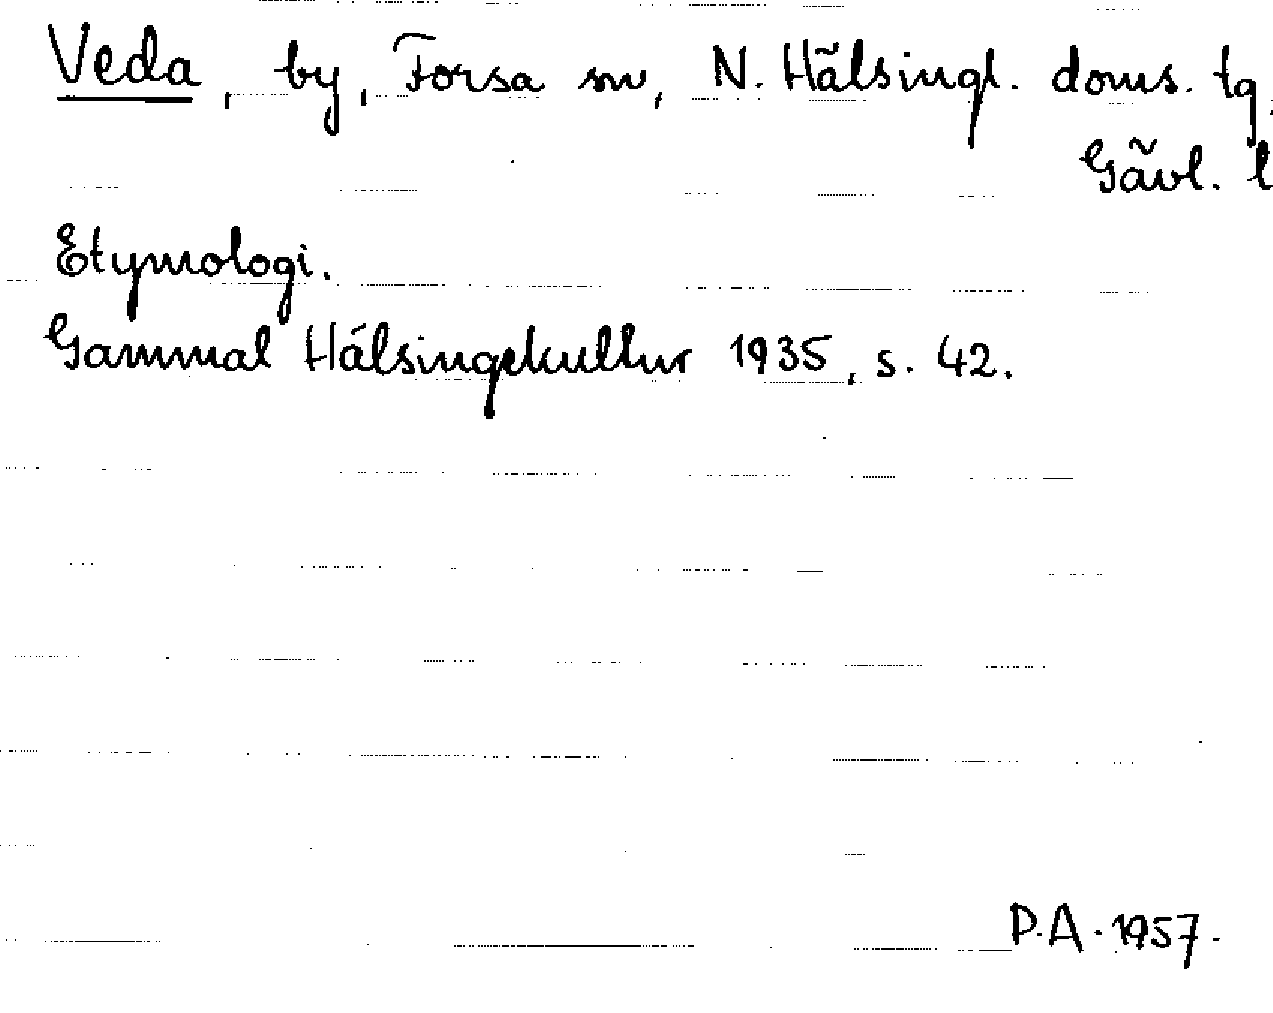 Veda, by, Forsa sn, N. Hälsingl. doms. tg,
Gävl. l
Etymologi.
Gammal Hälsingekultur 1935, s. 42.
P.A. 1957.